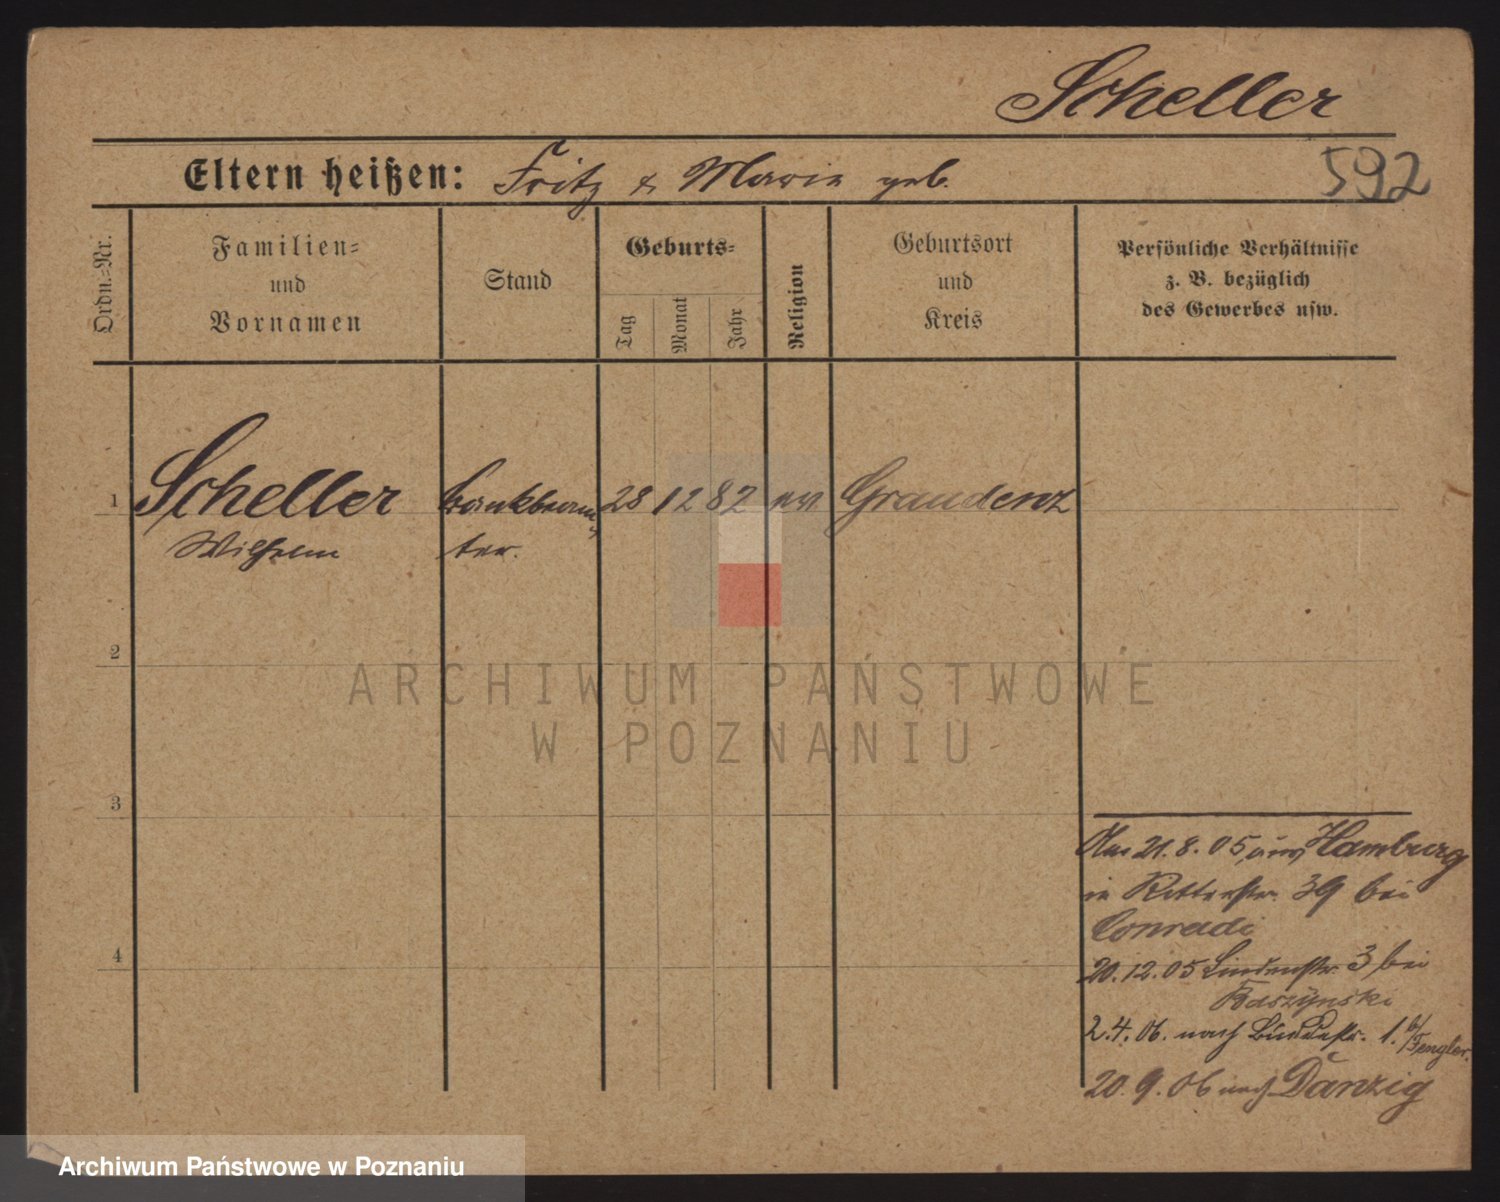 Scheller
Eltern heißen: Fritz & Marie geb.
592
Ordn.=Nr.
Familien=
und
Vornamen
Stand
Geburts=
Tag
Monat
Jahr
Religion
Geburtsort
und
Kreis
Persönliche Verhältnisse
z. B. bezüglich
des Gewerbes usw.
1
Scheller
Wilhelm
Bankbeam=
ter.
28
12
82
ev
Graudenz
2
3
4
Am 21.8.05 aus Hamburg
in Ritterstr. 39 bei
Conradi
20.12.05 Lindenstr. 3 bei
Raszynski
2.4.06. nach 1. b/Fengler.
20.9.06 nach Danzig
ARCHIWUM PAŃSTWOWE
W POZNANIU
Archiwum Państwowe w Poznaniu